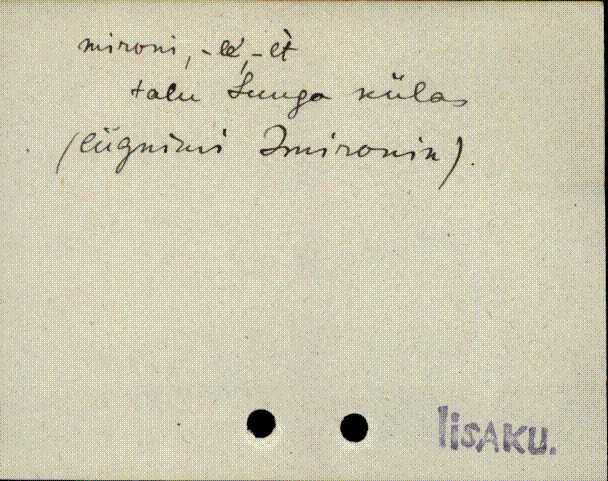 mironi, -le, -lt
talu Suuga külas
(liignimi Zmironin).
IISAKU.